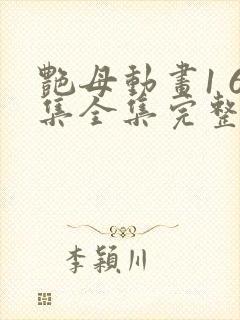 艷母動畫1 6
集全集完整
李穎川